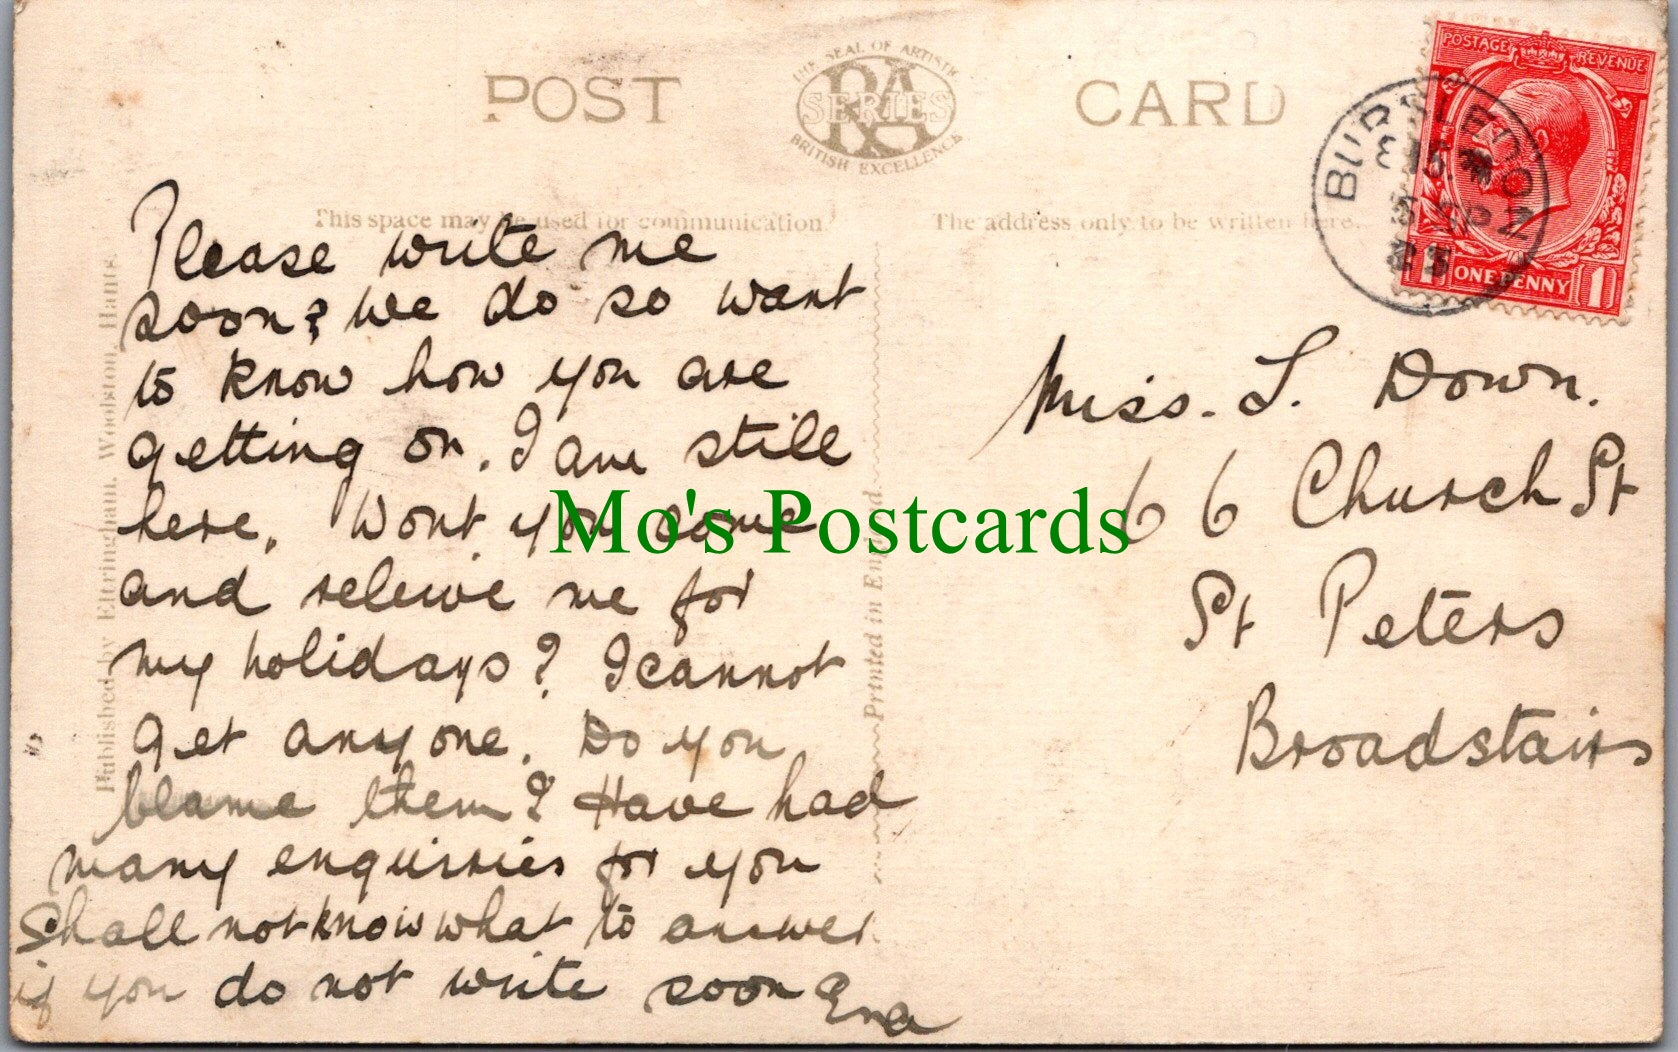 POST CARD
THE SEAL OF ARTISTIC
RA
SERIES
BRITISH EXCELLENCE
POSTAGE REVENUE
ONE PENNY 1
BURSLEDON
This space may be used for communication.
The address only to be written here.
Published by Eltringham, Woolston, Hants
Printed in England
Please write me
soon? We do so want
to know how you are
getting on. I am still
here. Wont you come
and releive me for
my holidays? I cannot
get anyone. Do you
blame them? Have had
many enquiries for you
Shall not know what to answer
if you do not write soon Ena
Miss. L. Down.
66 Church St
St Peters
Broadstairs
Mo's Postcards